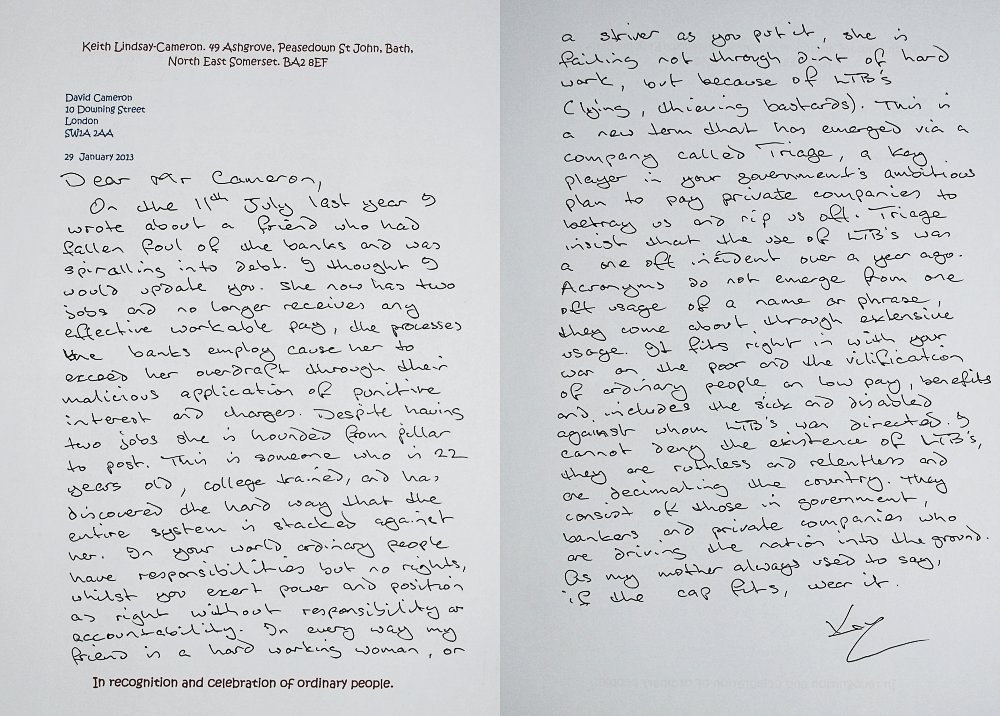 Keith Lindsay-Cameron. 49 Ashgrove, Peasedown St John, Bath,
North East Somerset. BA2 8EF
David Cameron
10 Downing Street
London
SW1A 2AA
29 January 2013
Dear Mr Cameron,
On the 11th July last year I
wrote about a friend who had
fallen foul of the banks and was
spiralling into debt. I thought I
would update you. She now has two
jobs and no longer receives any
effective workable pay, the processes
the banks employ cause her to
exceed her overdraft through their
malicious application of punitive
interest and charges. Despite having
two jobs she is hounded from pillar
to post. This is someone who is 22
years old, college trained, and has
discovered the hard way that the
entire system is stacked against
her. In your world ordinary people
have responsibilities but no rights,
whilst you exert power and position
as right without responsibility or
accountability. In every way my
friend is a hard working woman, or
In recognition and celebration of ordinary people.
a striver as you put it, she is
failing not through dint of hard
work, but because of LTB's
(lying, thieving bastards). This is
a new term that has emerged via a
company called Triage, a key
player in your government's ambitious
plan to pay private companies to
betray us and rip us off. Triage
insist that the use of LTB's was
a one off incident over a year ago.
Acronyms do not emerge from one
off usage of a name or phrase,
they come about through extensive
usage. It fits right in with your
war on the poor and the vilification
of ordinary people on low pay, benefits
and includes the sick and disabled
against whom LTB's was directed. I
cannot deny the existence of LTB's,
they are ruthless and relentless and
are decimating the country. They
consist of those in government,
bankers and private companies who
are driving the nation into the ground.
As my mother always used to say,
if the cap fits, wear it.